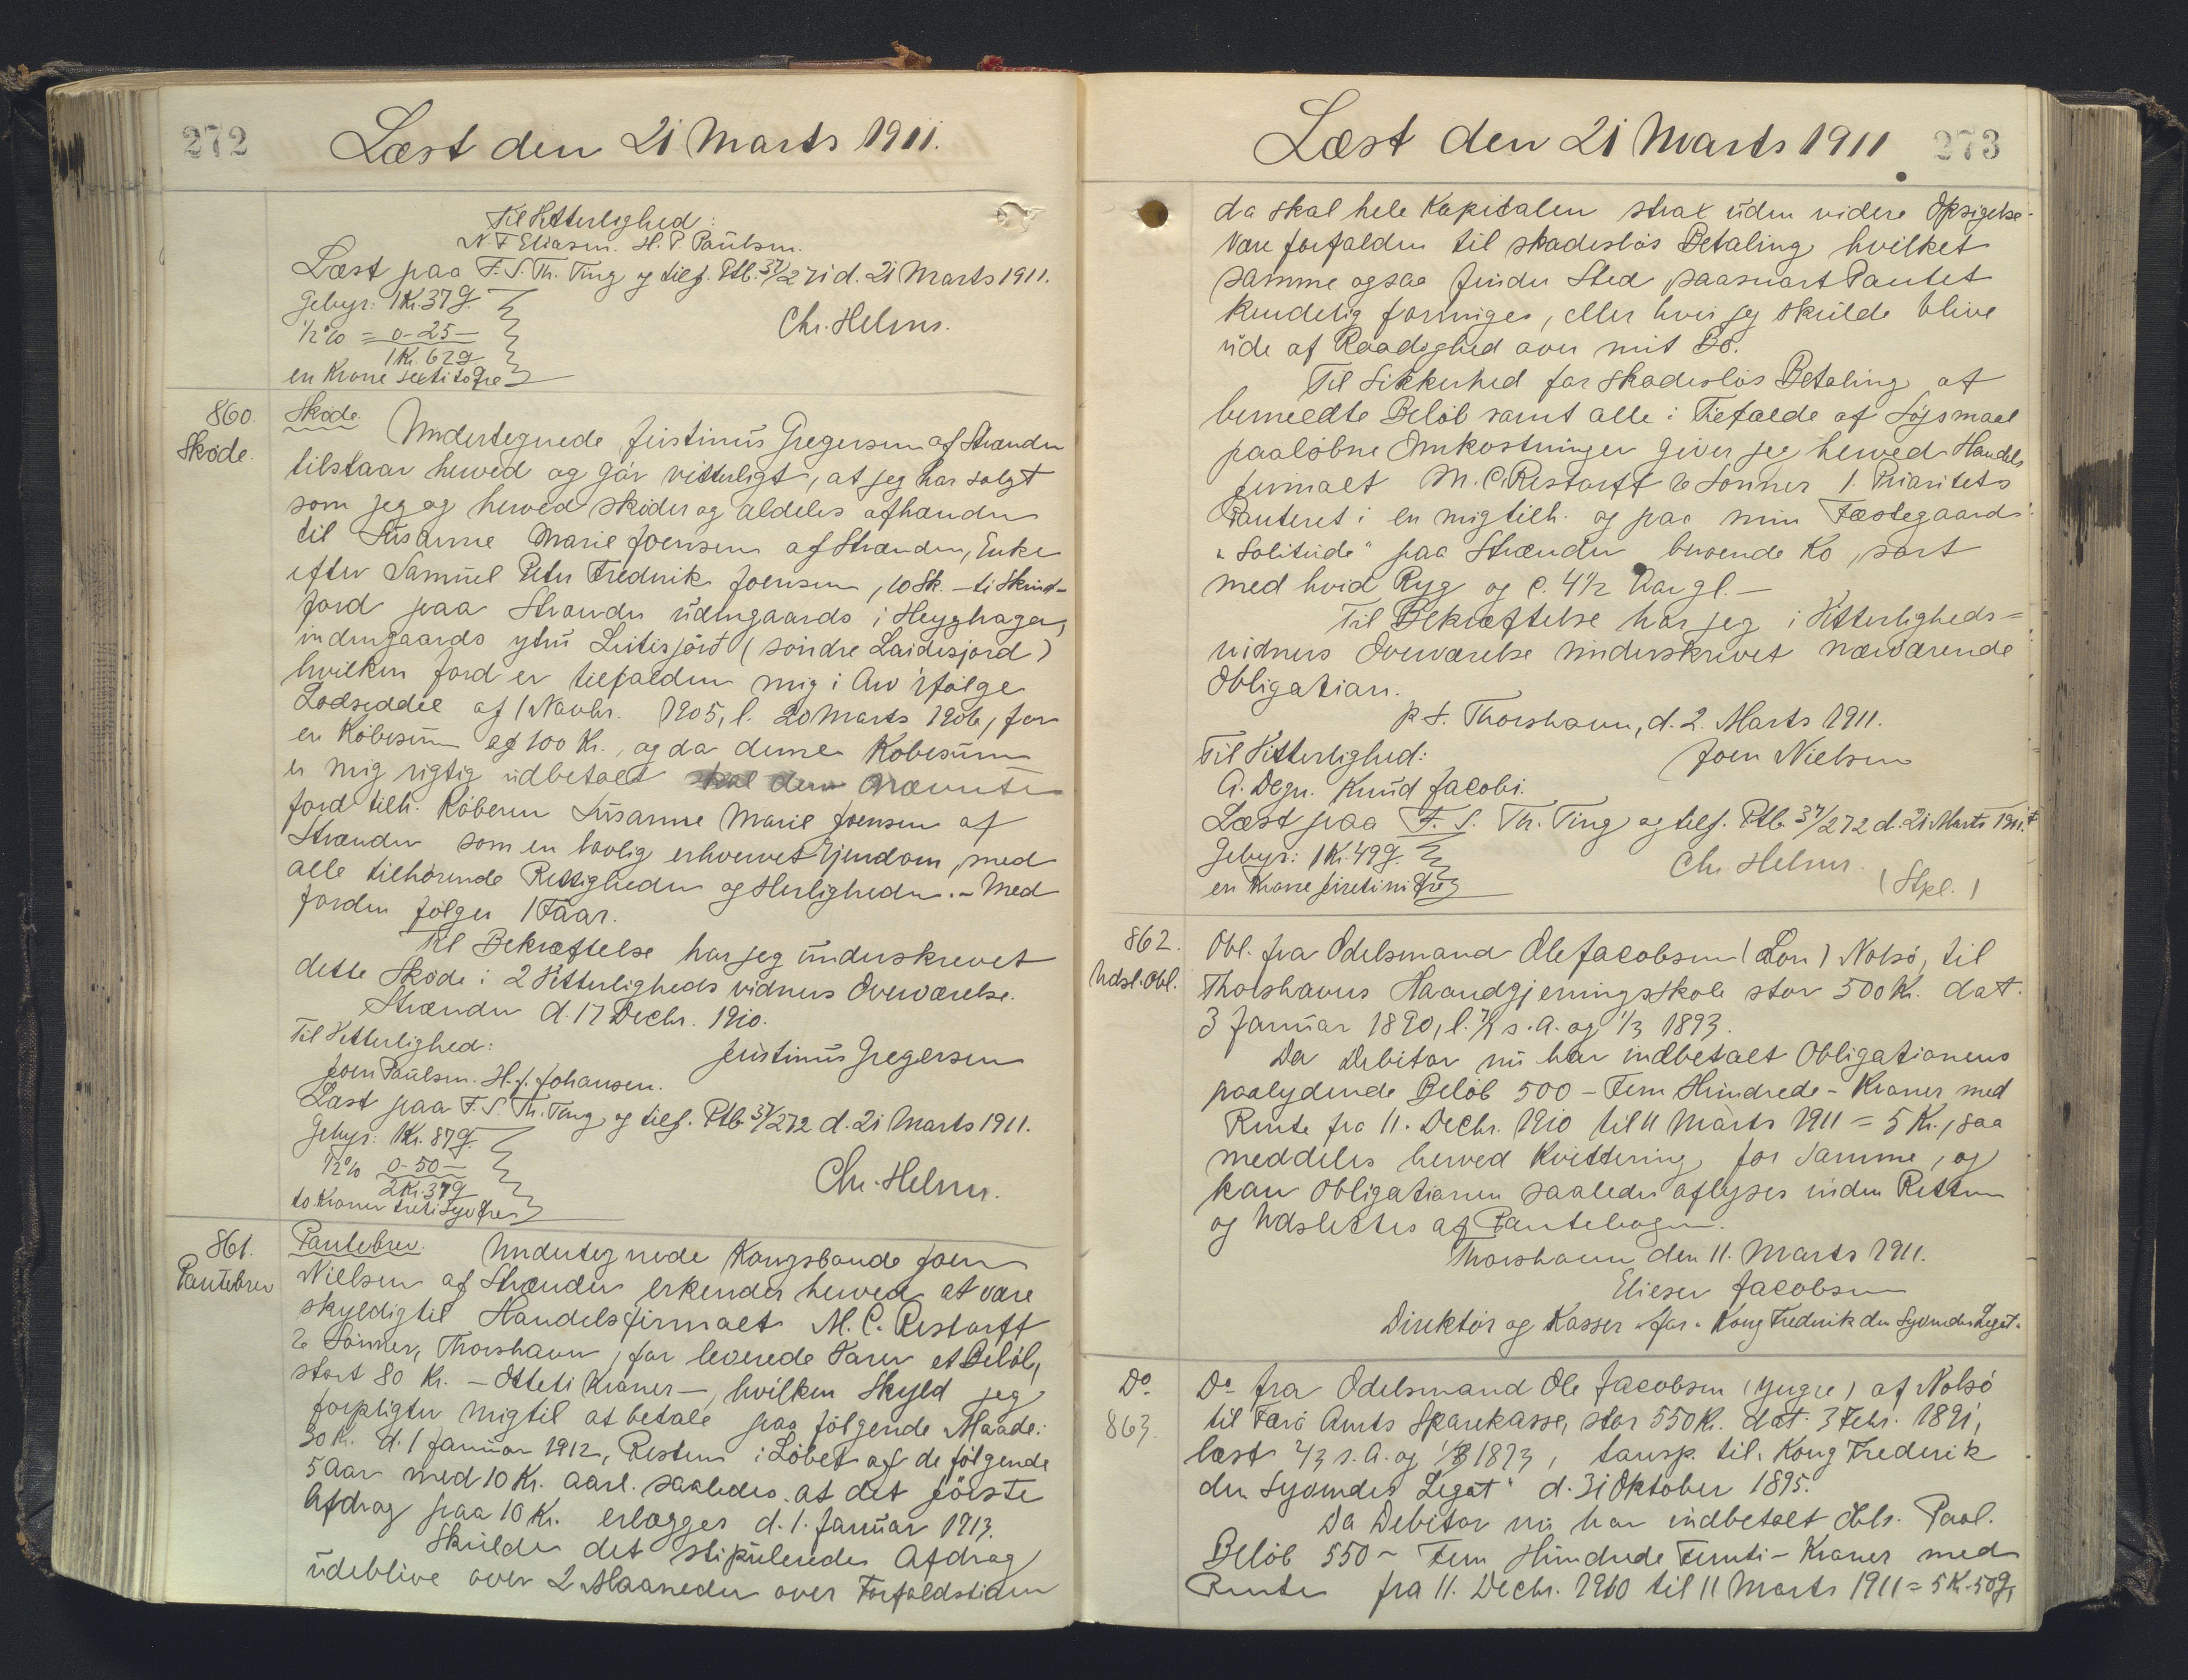 272
Læst den 21 Marts 1911.
Til Vitterlighed:
N. F Eliasen. H. P. Paulsen.
Læst paa F. S. Th. Ting og tilf. Ptb. 37/271 d. 21 Marts 1911.
Gebyr: 1 Kr. 37 Ø.
1/2 % = 0-25 —
1 Kr. 62 Ø
en Krone sextito Øre
Chr. Helms.
860.
Skøde.
Skøde. Undertegnede Justinus Gregersen af Strænder
tilstaar herved og gör vitterligt, at jeg har solgt
som jeg og herved skøder og aldeles afhænder
til Susanne Marie Joensen af Strænder, Enke
efter Samuel Peter Frederik Joensen, 10 Sk. — ti Skind —
Jord paa Strænder udengaards i Heyghagen,
indengaards ytru Leitisjörd (söndre Laidisjord)
hvilken Jord er tilfalden mig i Arv ifølge
Lodseddel af 1 Novbr. 1905, l. 20 Marts 1906, for
en Købesum af 100 Kr., og da denne Købesum
er mig rigtig udbetalt skal den nævnte
Jord tilh. Køberen Susanne Marie Joensen af
Strænder som en lovlig erhvervet Ejendom, med
alle tilhörende Rettigheder og Herligheder. — Med
Jorden følger 1 Faar.
Til Bekræftelse har jeg underskrevet
dette Skøde i 2 Vitterligheds vidners Overværelse.
Strænder d. 17 Decbr. 1910.
Til Vitterlighed:
Justinus Gregersen
Joen Paulsen. H. J. Johansen.
Læst paa F. S. Th. Ting og tilf. Ptb 37/272 d. 21 Marts 1911.
Gebyr: 1 Kr. 87 Ø.
1/2 % 0-50 —
2 Kr. 37 Ø
to Kroner treti syv Øre
Chr. Helms.
861.
Pantebrev
Pantebrev. Undertegnede Kongsbonde Joen
Nielsen af Strænder erkender herved at være
skyldig til Handelsfirmaet M. C. Restorff
& Sönner, Thorshavn, for leverede Varer et Beløb,
stort 80 Kr. — Otteti Kroner —, hvilken Skyld jeg
forpligter mig til at betale paa følgende Maade:
30 Kr. d. 1 Januar 1912, Resten i Løbet af de følgende
5 Aar med 10 Kr. aarl. saaledes at det första
Afdrag paa 10 Kr. erlægges d. 1. Januar 1913.
Skulde det stipulerede Afdrag
udeblive over 2 Maaneder over Forfaldstiden
Læst den 21 Marts 1911
273
da skal hele Kapitalen strax uden videre Opsigelse
være forfalden til skadesløs Betaling hvilket
samme ogsaa finder Sted saasnart Pantet
kendelig forringes, eller hvis jeg skulde blive
ude af Raadighed over mit Bo.
Til Sikkerhed for skadesløs Betaling af
bemeldte Beløb samt alle i Tilfælde af Søgsmaal
paaløbne Omkostninger giver jeg herved Handels
firmaet M. C. Restorff & Sönner 1. Prioritets
Panteret i en mig tilh. og paa min Fæstegaard
"Solitude" paa Strænder beroende Ko, sort
med hvid Ryg og c. 4 1/2 Aar gl. —
Til Bekræftelse har jeg i Vitterligheds=
vidners Overværelse underskrevet nærværende
Obligation.
p. t. Thorshavn, d. 2. Marts 1911.
Til Vitterlighed:
Joen Nielsen
A. Degn. Knud Jacobi.
Læst paa F. S. Th. Ting og tilf. Ptb. 37/272 d. 21 Marts 1911.
Gebyr: 1 Kr. 49 Ø.
en Krone firetini Øre
Chr Helms.
(Stpl.)
862.
Udsl. Obl.
Obl. fra Odelsmand Ole Jacobsen (Lon) Nolsö, til
Thorshavns Haandgjerningsskole stor 500 Kr. dat.
3 Januar 1890, l. s. A. og 1/3 1893.
Da Debitor nu har indbetalt Obligationens
paalydende Beløb 500 — Fem Hundrede — Kroner med
Rente fra 11. Decbr. 1910 til 11 Marts 1911 = 5 Kr., saa
meddeles herved Kvittering for Samme, og
kan Obligationen saaledes aflyses inden Retten
og Udslettes af Pantebogen.
Thorshavn den 11. Marts 1911.
Elieser Jacobsen
Direktør og Kasser for "Kong Frederik den Syvendes Legat"
Do.
863.
Do fra Odelsmand Ole Jacobsen (yngre) af Nolsö
til Færö Amts Sparekasse, stor 550 Kr. dat. 3 Febr. 1891,
læst 4/3 s. A. og 1/3 1893, transp. til "Kong Frederik
den Syvendes Legat" d. 31 Oktober 1895.
Da Debitor nu har indbetalt Obls. Paal.
Beløb 550 — Fem Hundrede Femti — Kroner med
Rente fra 11. Decbr. 1910 til 11 Marts 1911 = 5 K. 50 Ø,